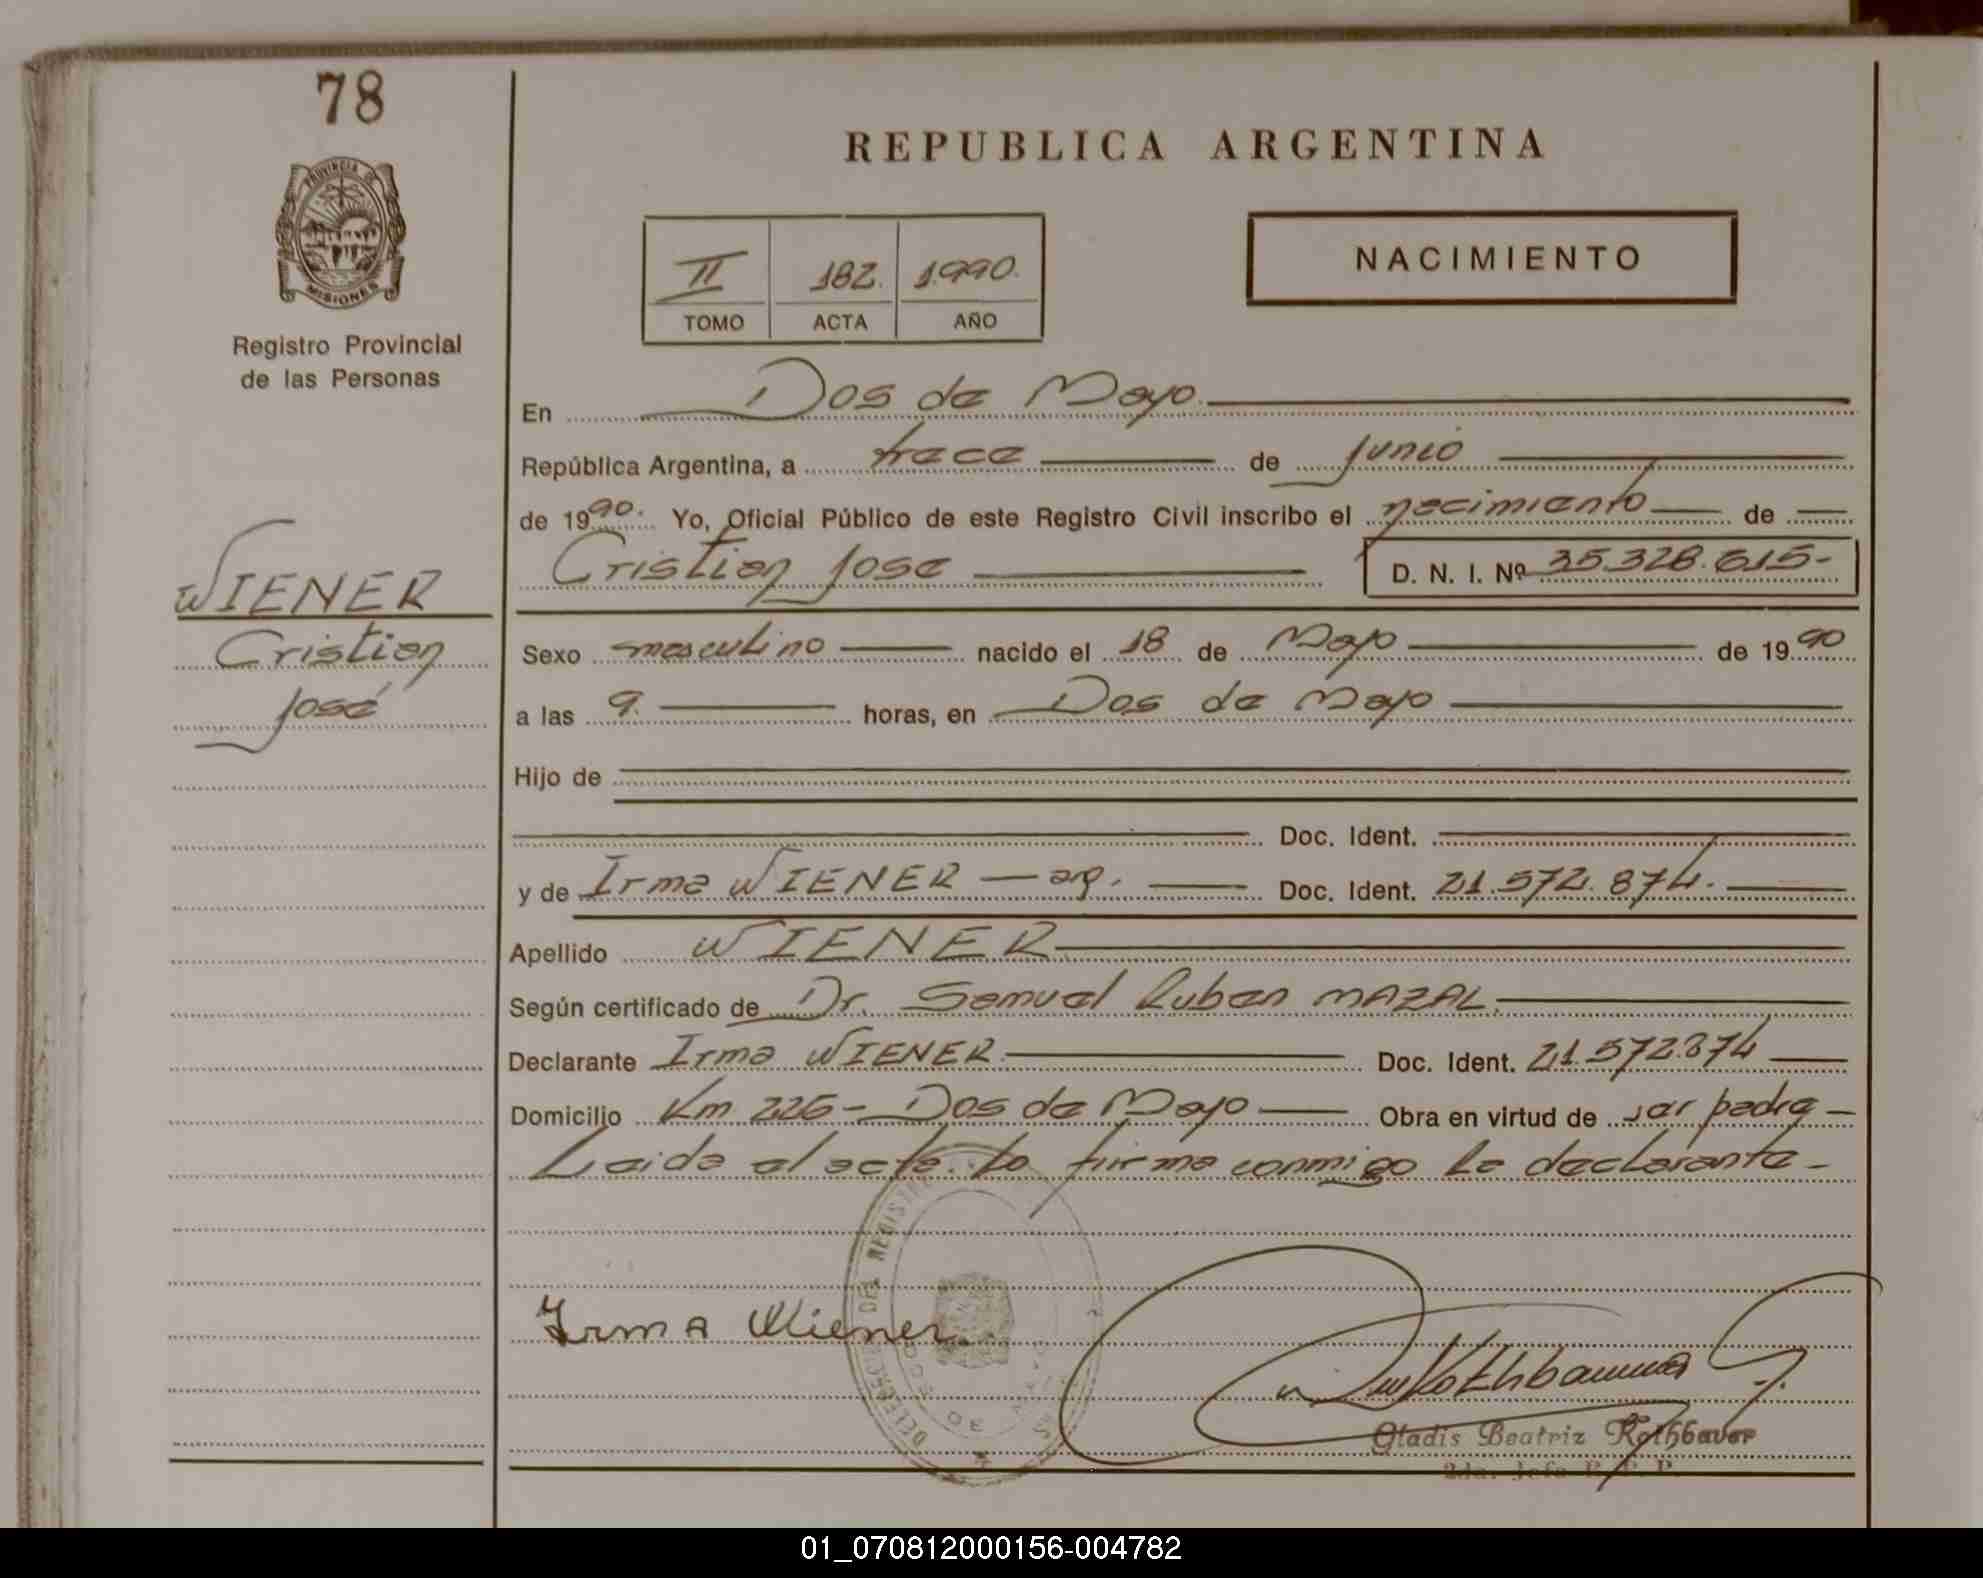 78
PROVINCIA DE
MISIONES
Registro Provincial
de las Personas
WIENER
Cristian
José
REPUBLICA ARGENTINA
II 182. 1.990.
TOMO ACTA AÑO
NACIMIENTO
En Dos de Mayo.
República Argentina, a trece de junio
de 1990. Yo, Oficial Público de este Registro Civil inscribo el nacimiento de
Cristian Jose D. N. I. Nº 35.328.615-
Sexo masculino nacido el 18 de Mayo de 1990
a las 9. horas, en Dos de Mayo
Hijo de
Doc. Ident.
y de Irma WIENER — arg. Doc. Ident. 21.572.874.
Apellido WIENER
Según certificado de Dr. Samuel Ruben MAZAL.
Declarante Irma WIENER Doc. Ident. 21.572.874
Domicilio Km 226 - Dos de Mayo Obra en virtud de ser padre
Leida el acta. La firma conmigo la declarante -
Irma Wiener
DEL REGISTR
Rothbauer
Gladis Beatriz Rothbauer
2da. Jefa R. P. P.
01_070812000156-004782